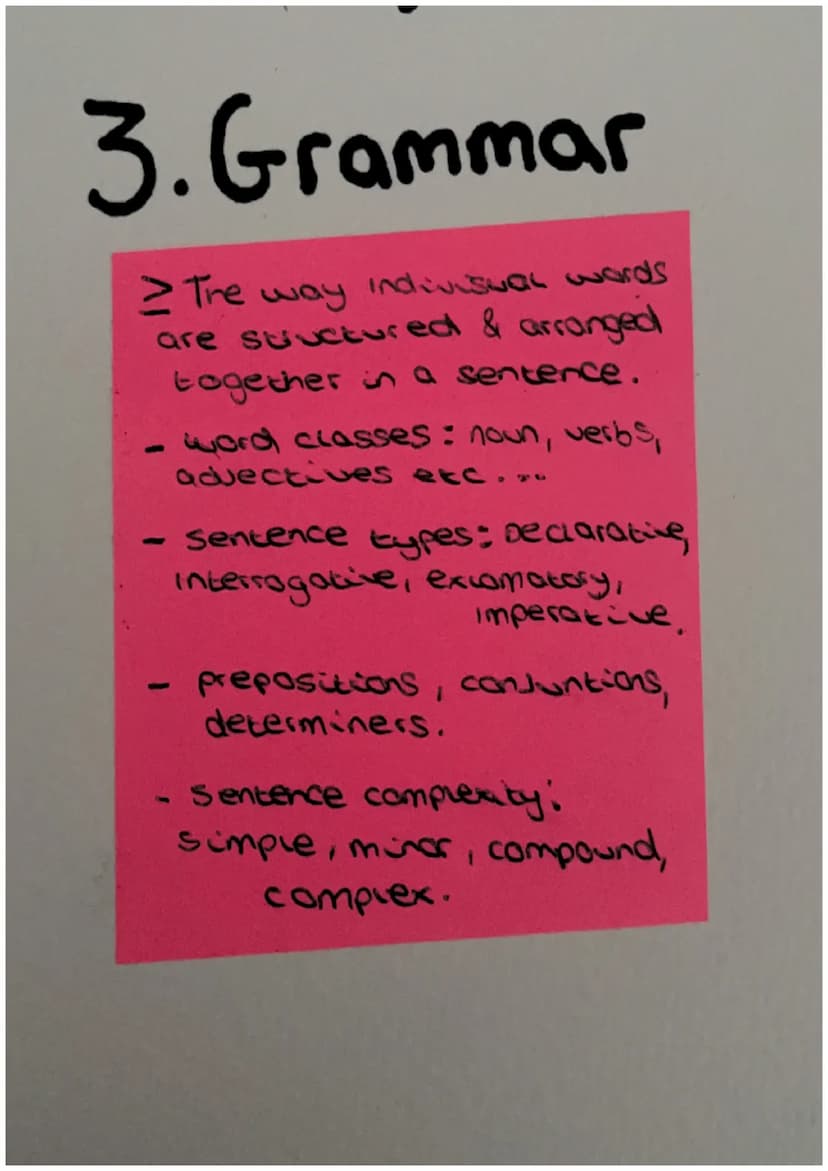 3. Grammar
≥ The way individual words
are structured & arranged
together in a sentence.
- word classes: noun, verbs,
adjectives etc....
- sentence types: Declarative,
interrogative, exlamatory,
imperative.
- prepositions, conjuntions,
determiners.
- sentence complexity:
simple, minor, compound,
complex.